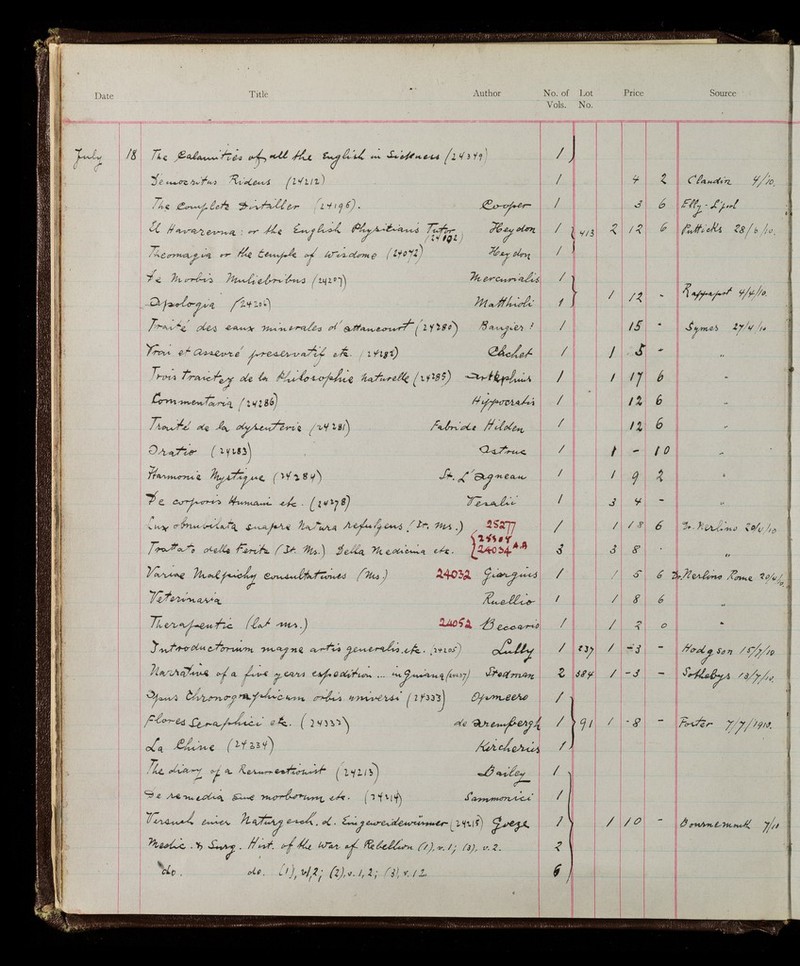 Date Title Author No. of Vols. Lot No. Price Source
July 18 The Calamities of all the English in Sickness (24349) 1
Democritus Ridens (24212) 1 4 2 Claudin 4/7/10.
The Complete Distaller (24196). Cooper 1 3 6
El Havarevna: or the English Physitians Tutor (24192) Heydon 1 413 2 12 6 Putticks 28/6/10.
Theomagia or the temple of wisdome (24042) Heydon 1
De Morbis Muliebribus (24207) Mercurialis 1
Apologia (24206) Matthioli 1 1 12 - Rappaport 4/4/10.
Traité des eaux minerales d'Attancourt (24280) Baugier 1 15 - Symes 27/4/10
Vrai et Asseuré preservatif etc. (24282) Cachet 1 1 5 - "
Trois Traictez de la Philosophie naturelle (24285) Artephius 1 1 17 6 "
Commentaria (24286) Hippocratis 1 12 6 "
Traité de la dysenterie (24281) Fabrice Hilden 1 12 6 "
Oratio (24283) Astruc 1 1 - 10 "
Harmonie Mystique (24284) St. L'Agneau 1 1 9 2 "
De corporis Humani etc. (24278) Vesalii 1 3 4 - "
Lux obnubilata suapre Natura Refulgens (It. Ms.) 25277 1 1 18 6 Dr. Merlino 20/4/10
Trattato della Ferite (It. Ms.) Della Medicina etc. 24034 3 3 8 - "
Variae Malpichij Consultationes (Ms.) 24032 Giorgius 1 1 5 6 Dr. Merlino Rome 20/4/10.
Veterinaria Ruellio 1 1 8 6 "
Therapeutic (Lat ms.) 24052 Beccario 1 1 2 0 "
Introductorium magne artis generalis etc. (24205) Lully 1 237 1 -3 - Hodgson 15/7/10
Narrative of a five years expedition ... in Guiana Stedman 2 584 1 -3 - Sothebys 12/7/10.
Opus Chronographicum orbis universi (24333) Opmeero 1
Flores Seraphici etc. (24332) de Aremberg 1 91 1 -8 - Foster 7/7/1910.
La Chine (24334) Kircherius 1
The diary of a Resurrectionist (24213) Bailey 1
De remedia sive morborum etc. (24214) Sammonici 1
Versuch einer Naturgesch. d. Eingeweidewürmer Goeze 1 1 10 - Bournemouth 7/10
Medic. & Surg. Hist. of the War of Rebellion (1), v. 1; (3), v. 2. 2
do. do. (1), v1,2; (2), v. 1, 2; (3), v. 1 2 6